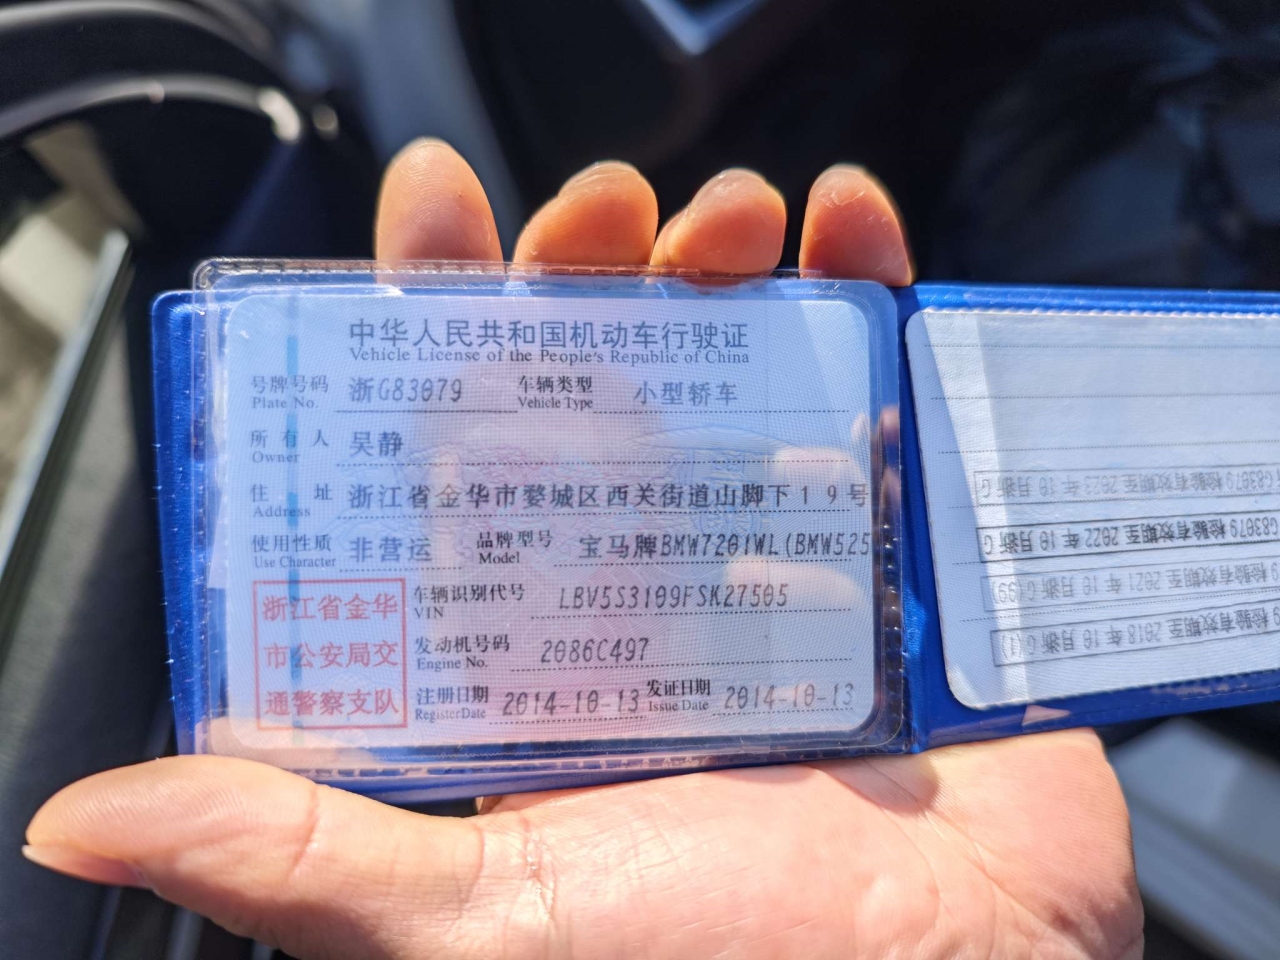 中华人民共和国机动车行驶证
Vehicle License of the People's Republic of China
号牌号码 浙G83079 车辆类型 小型轿车
Plate No. Vehicle Type
所有人 吴静
Owner
住址 浙江省金华市婺城区西关街道山脚下19号
Address
使用性质 非营运 品牌型号 宝马牌BMW7201WL(BMW525
Use Character Model
浙江省金华
市公安局交
通警察支队
车辆识别代号 LBV5S3109FSK27505
VIN
发动机号码 2086C497
Engine No.
注册日期 2014-10-13 发证日期 2014-10-13
Register Date Issue Date
检验有效期至2018年10月浙G(1)
检验有效期至2021年10月浙G(99)
G83079检验有效期至2022年10月浙G
G83079检验有效期至2023年10月浙G